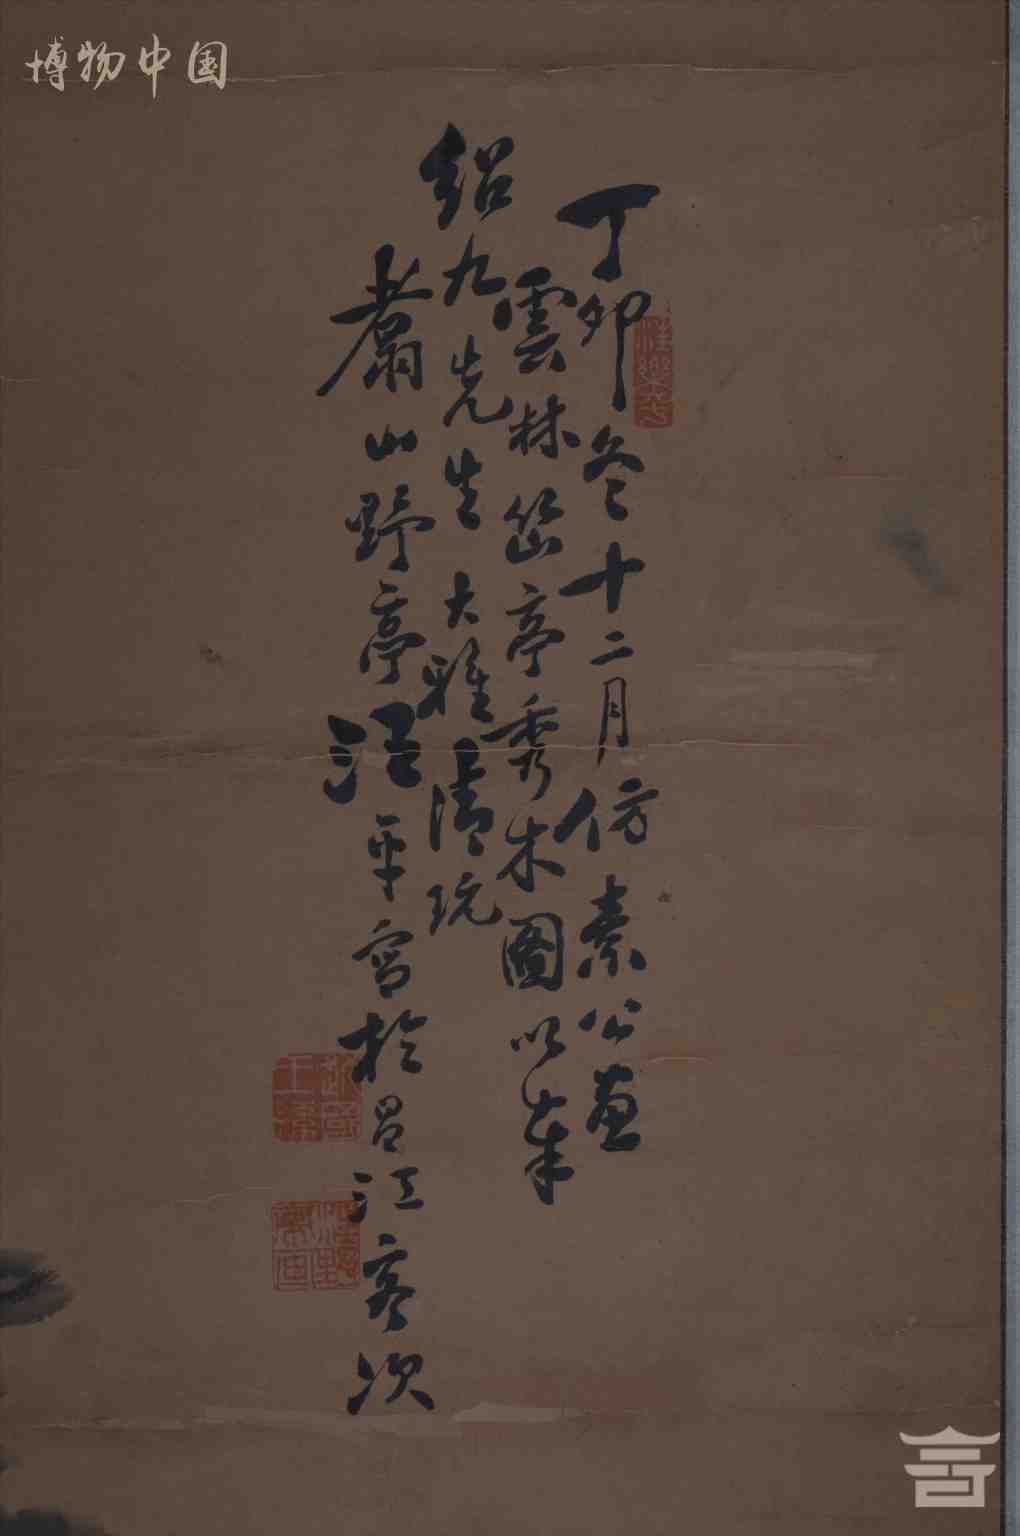 博物中国
丁卯冬十二月仿素公畫
雲林亭秀木圖以奉
紹九先生大雅清玩
山野亭汪平寫於呂江客次